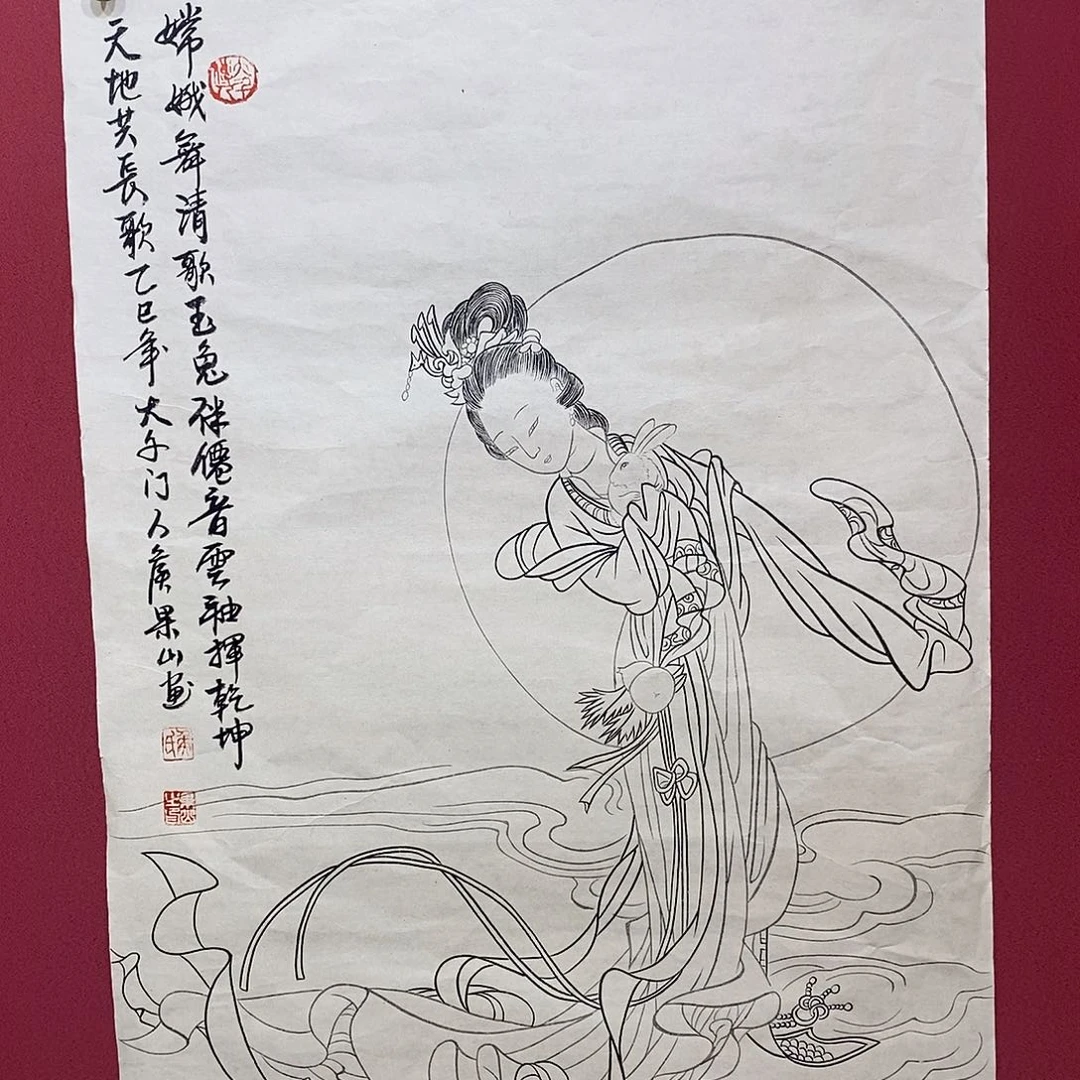 嫦娥舞清歌玉兔伴僊音雲袖揮乾坤
天地共長歌乙巳年大千门人黄果山画